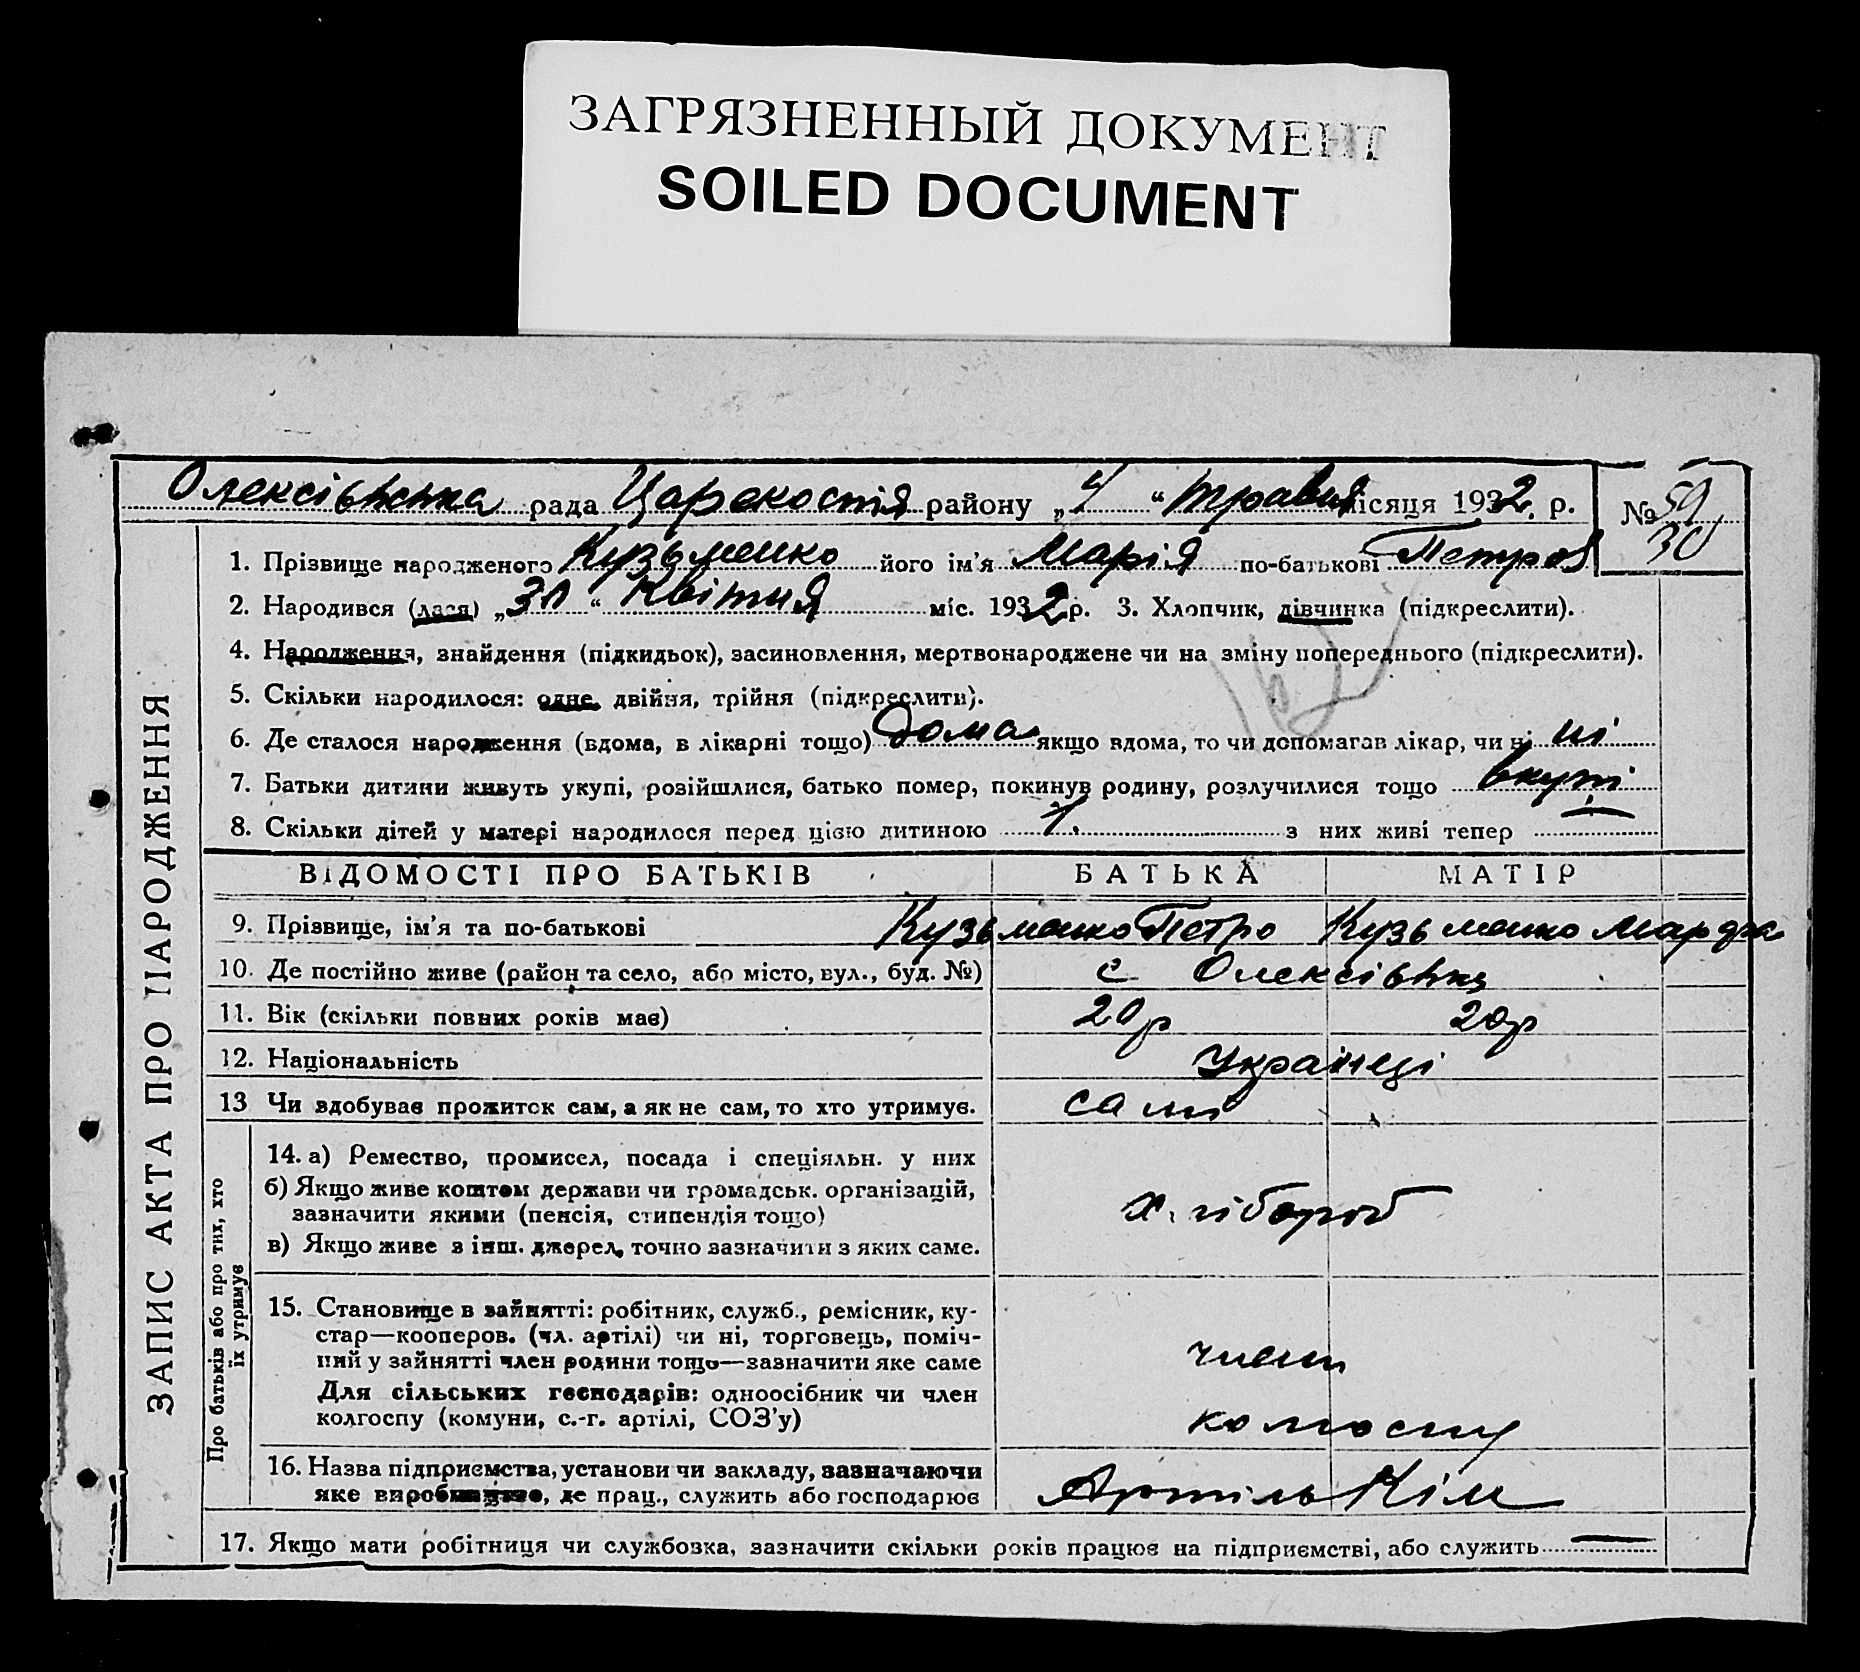 ЗАГРЯЗНЕННЫЙ ДОКУМЕНТ
SOILED DOCUMENT
Олексіївська рада Царекостя району „4“ травня місяця 1932. р. № 59
30
1. Прізвище народженого Кузьменко його ім'я Марія по-батькові Петров
2. Народився (лася) „30“ Квітня міс. 1932 р. 3. Хлопчик, дівчинка (підкреслити).
4. Народження, знайдення (підкидьок), засиновлення, мертвонароджене чи на зміну попереднього (підкреслити).
5. Скільки народилося: одне, двійня, трійня (підкреслити).
6. Де сталося народження (вдома, в лікарні тощо) дома якщо вдома, то чи допомагав лікар, чи ні ні
7. Батьки дитини живуть укупі, розійшлися, батько помер, покинув родину, розлучилися тощо вкупі
8. Скільки дітей у матері народилося перед цією дитиною 1. з них живі тепер —
ВІДОМОСТІ ПРО БАТЬКІВ БАТЬКА МАТІР
9. Прізвище, ім'я та по-батькові Кузьменко Петро Кузьменко Марфа
10. Де постійно живе (район та село, або місто, вул., буд. №) с Олексіївка
11. Вік (скільки повних років має) 20р 20р
12. Національність Українці
13 Чи здобуває прожиток сам, а як не сам, то хто утримує. сами
14. а) Ремество, промисел, посада і спеціяльн. у них
б) Якщо живе коштом держави чи громадськ. організацій,
зазначити якими (пенсія, стипендія тощо) х.
в) Якщо живе з інш. джерел, точно зазначити з яких саме.
15. Становище в зайнятті: робітник, служб., ремісник, ку-
стар—кооперов. (чл. артілі) чи ні, торговець, поміч-
ний у зайнятті член родини тощо—зазначити яке саме член
Для сільських господарів: одноосібник чи член
колгоспу (комуни, с.-г. артілі, СОЗ'у) колгоспу
16. Назва підприємства, установи чи закладу, зазначаючи
яке виробництво, де прац., служить або господарює Артіль Кім
17. Якщо мати робітниця чи службовка, зазначити скільки років працює на підприємстві, або служить —
ЗАПИС АКТА ПРО НАРОДЖЕННЯ
Про батьків або про тих, хто
їх утримує